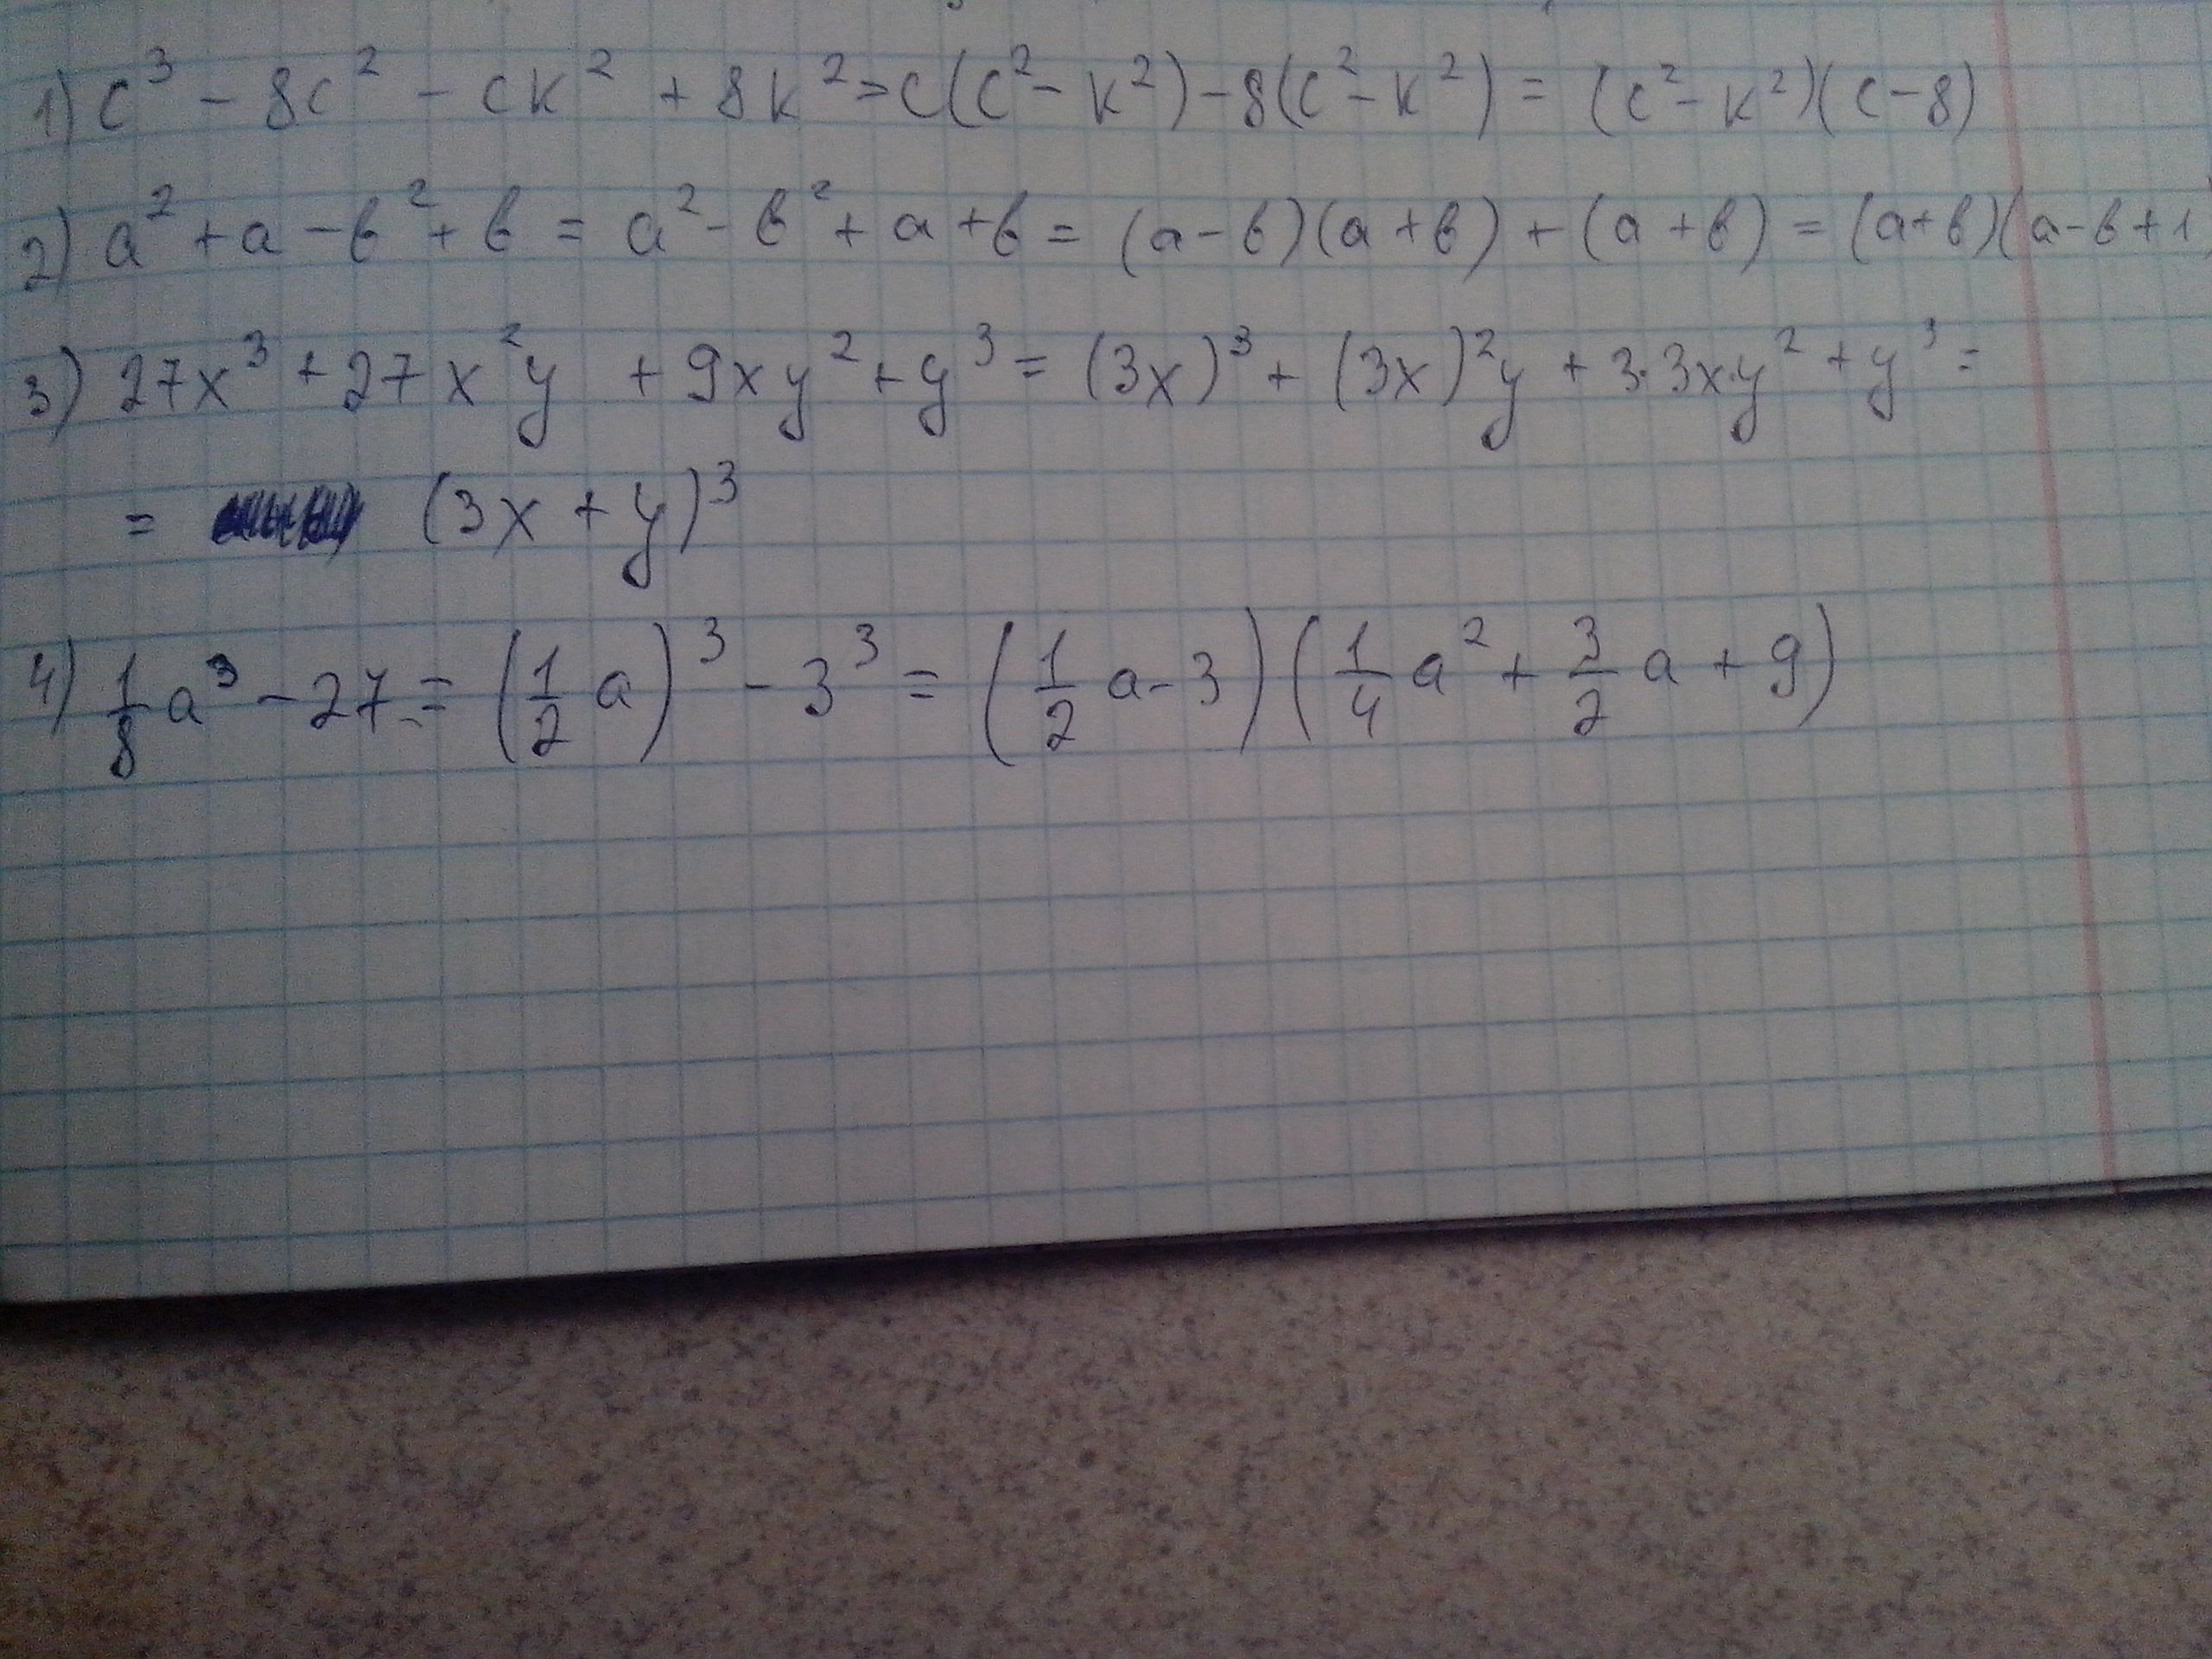 1) c³ - 8c² - ck² + 8k² = c(c² - k²) - 8(c² - k²) = (c² - k²)(c - 8)
2) a² + a - b² + b = a² - b² + a + b = (a - b)(a + b) + (a + b) = (a + b)(a - b + 1)
3) 27x³ + 27x²y + 9xy² + y³ = (3x)³ + (3x)²y + 3·3x·y² + y³ =
= (3x + y)³
4) 1/8 a³ - 27 = (1/2 a)³ - 3³ = (1/2 a - 3)(1/4 a² + 3/2 a + 9)